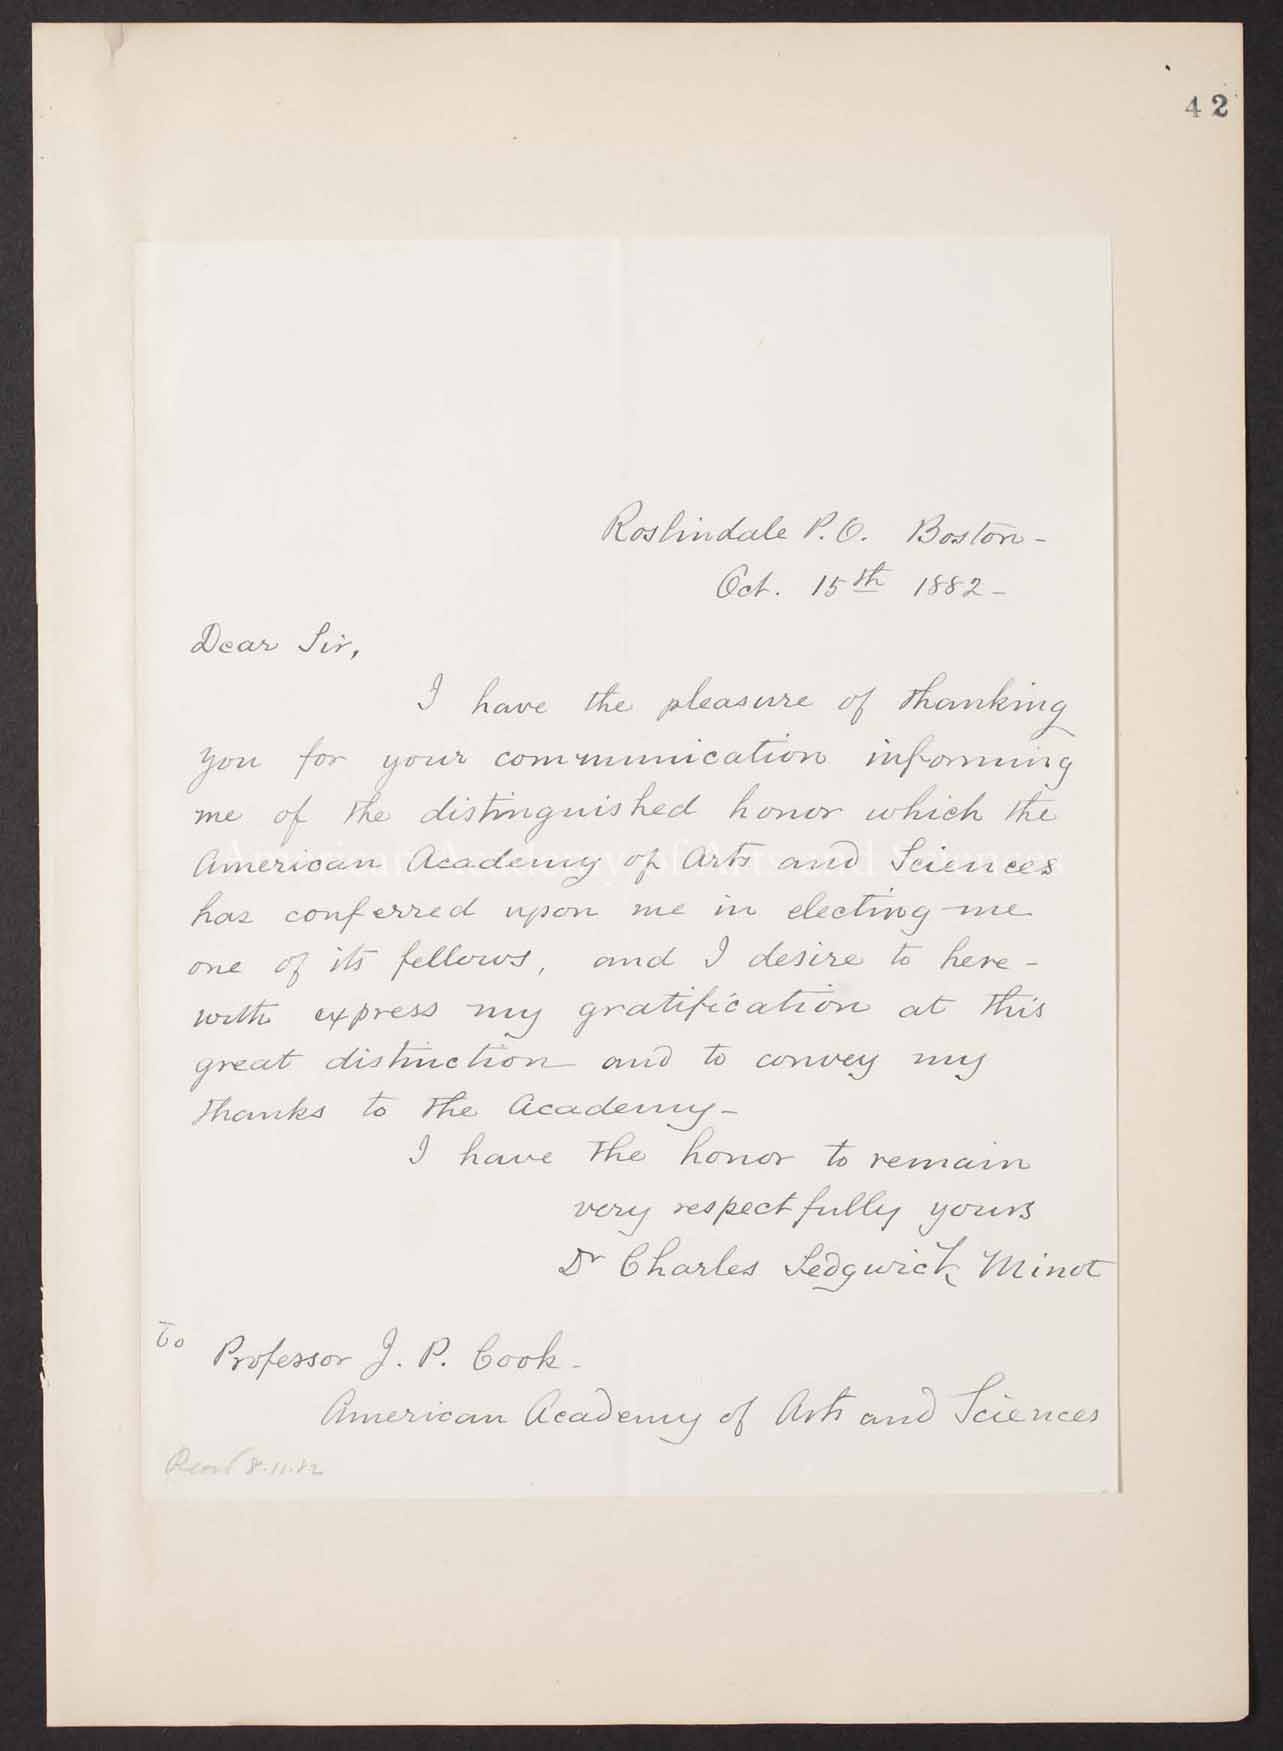 42
Roslindale P.O. Boston-
Oct. 15th 1882-
Dear Sir,
I have the pleasure of thanking
you for your communication informing
me of the distinguished honor which the
American Academy of Arts and Sciences
has conferred upon me in electing me
one of its fellows, and I desire to here-
with express my gratification at this
great distinction and to convey my
thanks to the Academy-
I have the honor to remain
very respectfully yours
Dr Charles Sedgwick Minot
To Professor J. P. Cook-
American Academy of Arts and Sciences
8.11.82